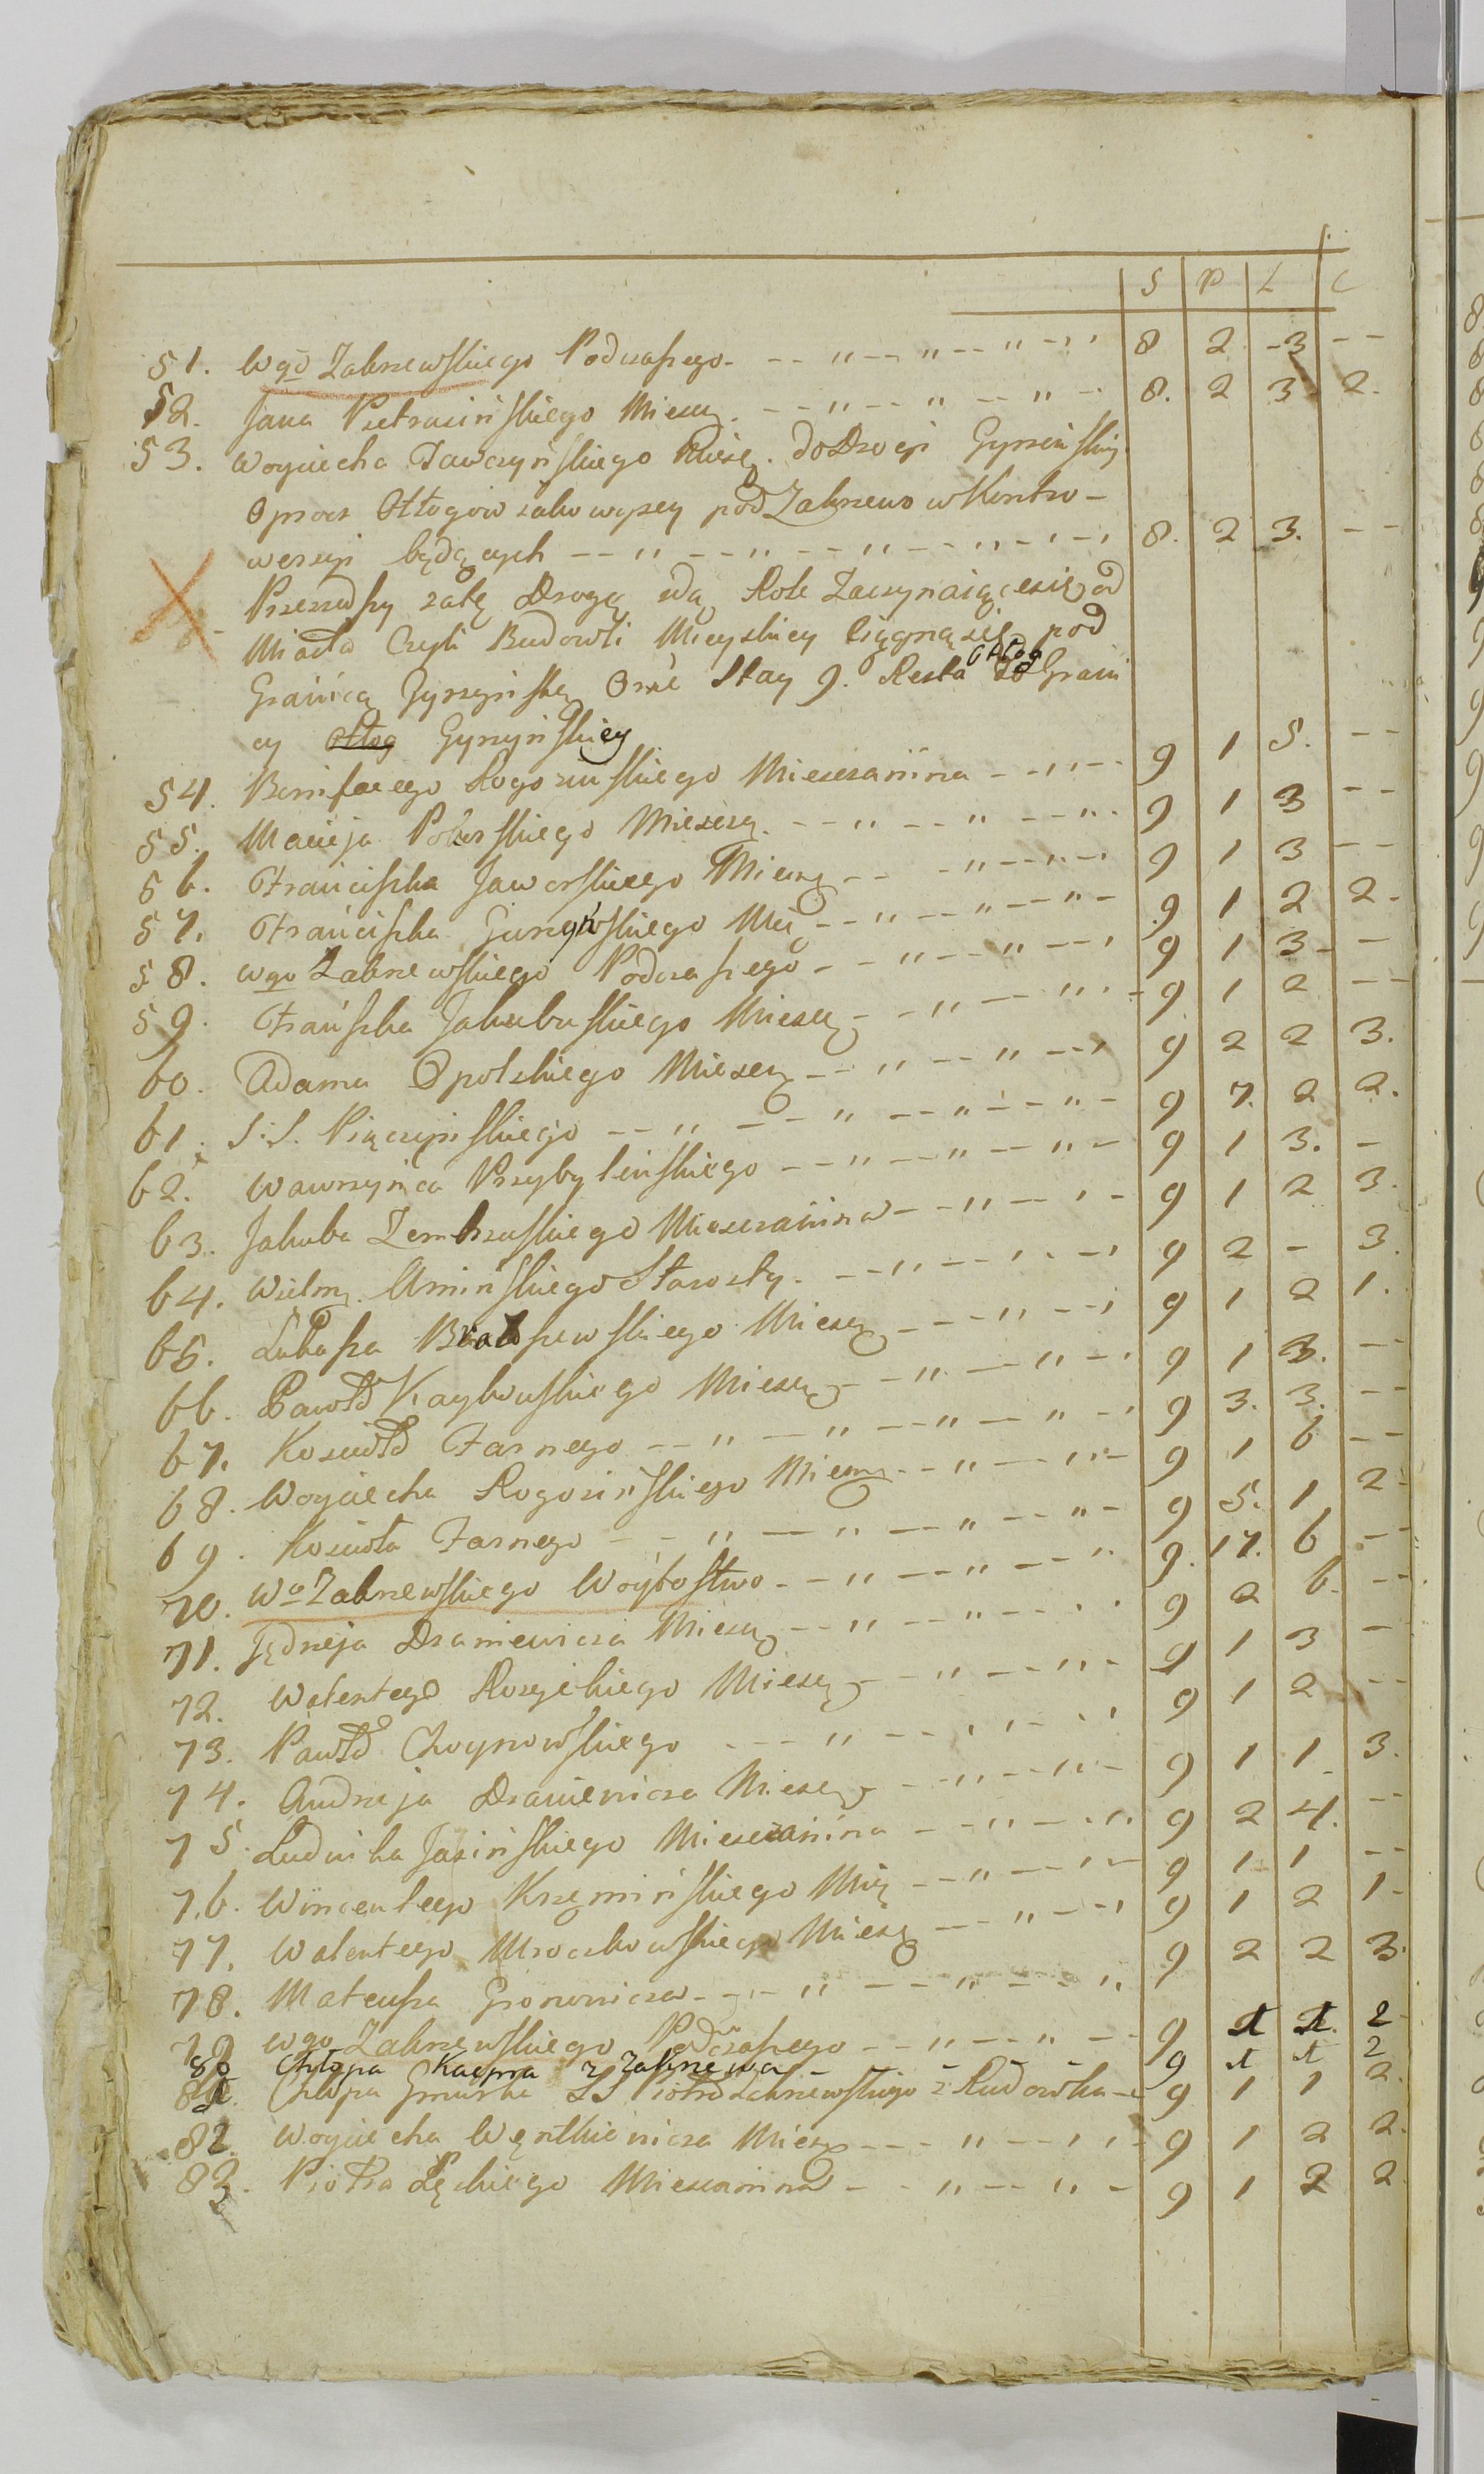 S P L C
51. Wgo Zakrzewskiego Podczaszego 8 2 3 --
52. Jana Pietrasińskiego Miescz. 8. 2 3 2.
53. Woyciecha Tawczyńskiego Miesz. do Drogi
Oprocz Otłogow pod Zakrzewo w Kontro-
wersyi będących 8. 2 3. --
Przeszedszy zatę Drogę idą Role Zaczynaiące się od
Miasta Czyli Budowli Mieyskiey Ciągną się pod
Granicą Gyrzyńską Orne Stay 9. Resta Otłog do Grani
cy Otłog Gyrzyńskiey
54. Bonifacego Rogozińskiego Miesczanina 9 1 5. --
55. Macieja Miescz. 9 1 3 --
56. Franciszka Jaworskiego Miescz 9 1 3 --
57. Franciszka Mię 9 1 2 2-
58. Wgo Zakrzewskiego Podczaszego 9 1 3 --
59. Frańszka Jakubuskiego Miescz 9 1 2 --
60. Adama Opolskiego Miescz 9 2 2 3.
61. S.S. Piączyńskiego 9 7. 2 2.
62. Wawrzyńca Przybylińskiego 9 1 3. -
63. Jakuba Zembrzuskiego Miesczanina 9 1 2 3.
64. Wielm. Umińskiego Starosty. 9 2 - 3.
65. Łukasza Miescz 9 1 2 1.
66. Pawła Kaykowskiego Miescz 9 1 3. --
67. Koscioła Farnego 9 3. 3. --
68. Woyciecha Rogozińskiego Miescz 9 1 6 --
69. Koscioła Farnego 9 5. 1 2
70. Wo Zakrzewskiego Woytostwo 9. 17. 6 --
71. Jędrzeja Draniewicza Miescz 9 2 6. --
72. Walentego Rosyckiego Miescz 9 1 3 -
73. Pawła Choynowskiego 9 1 2 --
74. Andrzeja Draniewicza Miescz 9 1 1 3.
75. Ludwika Jasińskiego Miesczanina 9 2 4. --
76. Wincentego Krzemińskiego Mię 9 1 1 --
77. Walentego Mroczkowskiego Miesz 9 1 2 1-
78. Mateusza Gronowicza 9 2 2 3.
79 Wgo Zakrzewskiego Podczaszego 9 1 1. 2
80 Chłopa Kacpra z Zakrzewa 9 1 1 2
81. Chłopa SS Piotra Zakrzewskiego z Rudowka 9 1 1 2.
82. Woyciecha Miescz 9 1 2 2.
83. Piotra Łęckiego Miesczanina 9 1 2 2